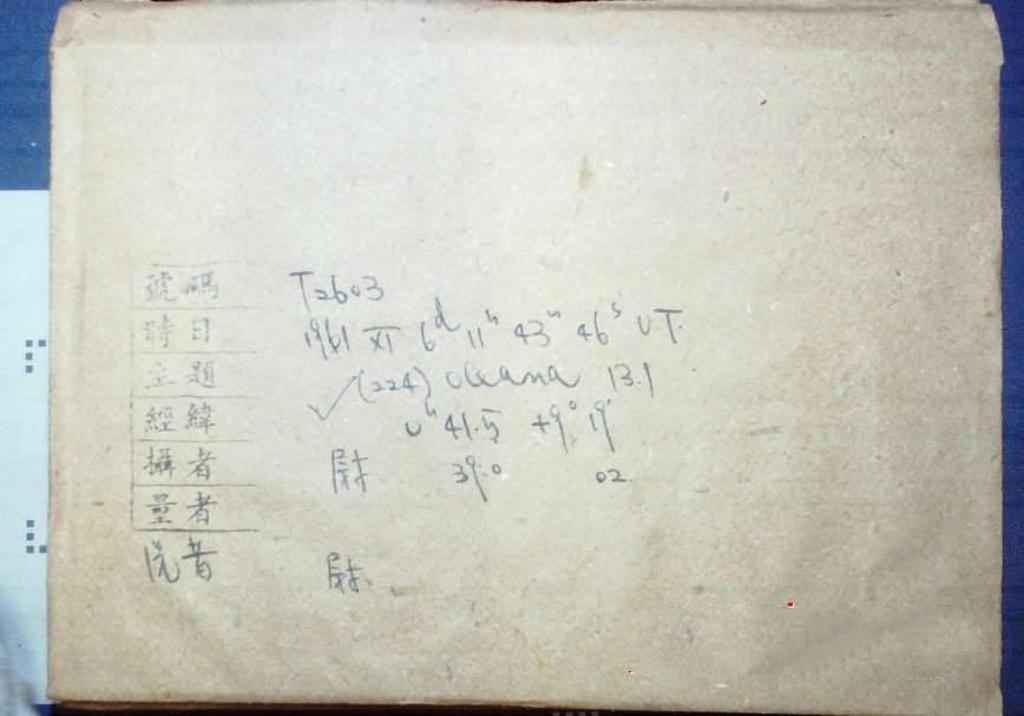 號碼 T2603
時日 1961 XI 6ᵈ 11ʰ 43ᵐ 46ˢ UT.
主題 (224) Oceana 13.1
經緯 ✓ 0ʰ 41.5 +9° 19'
攝者 尉 39.0 02
量者
洗者 尉